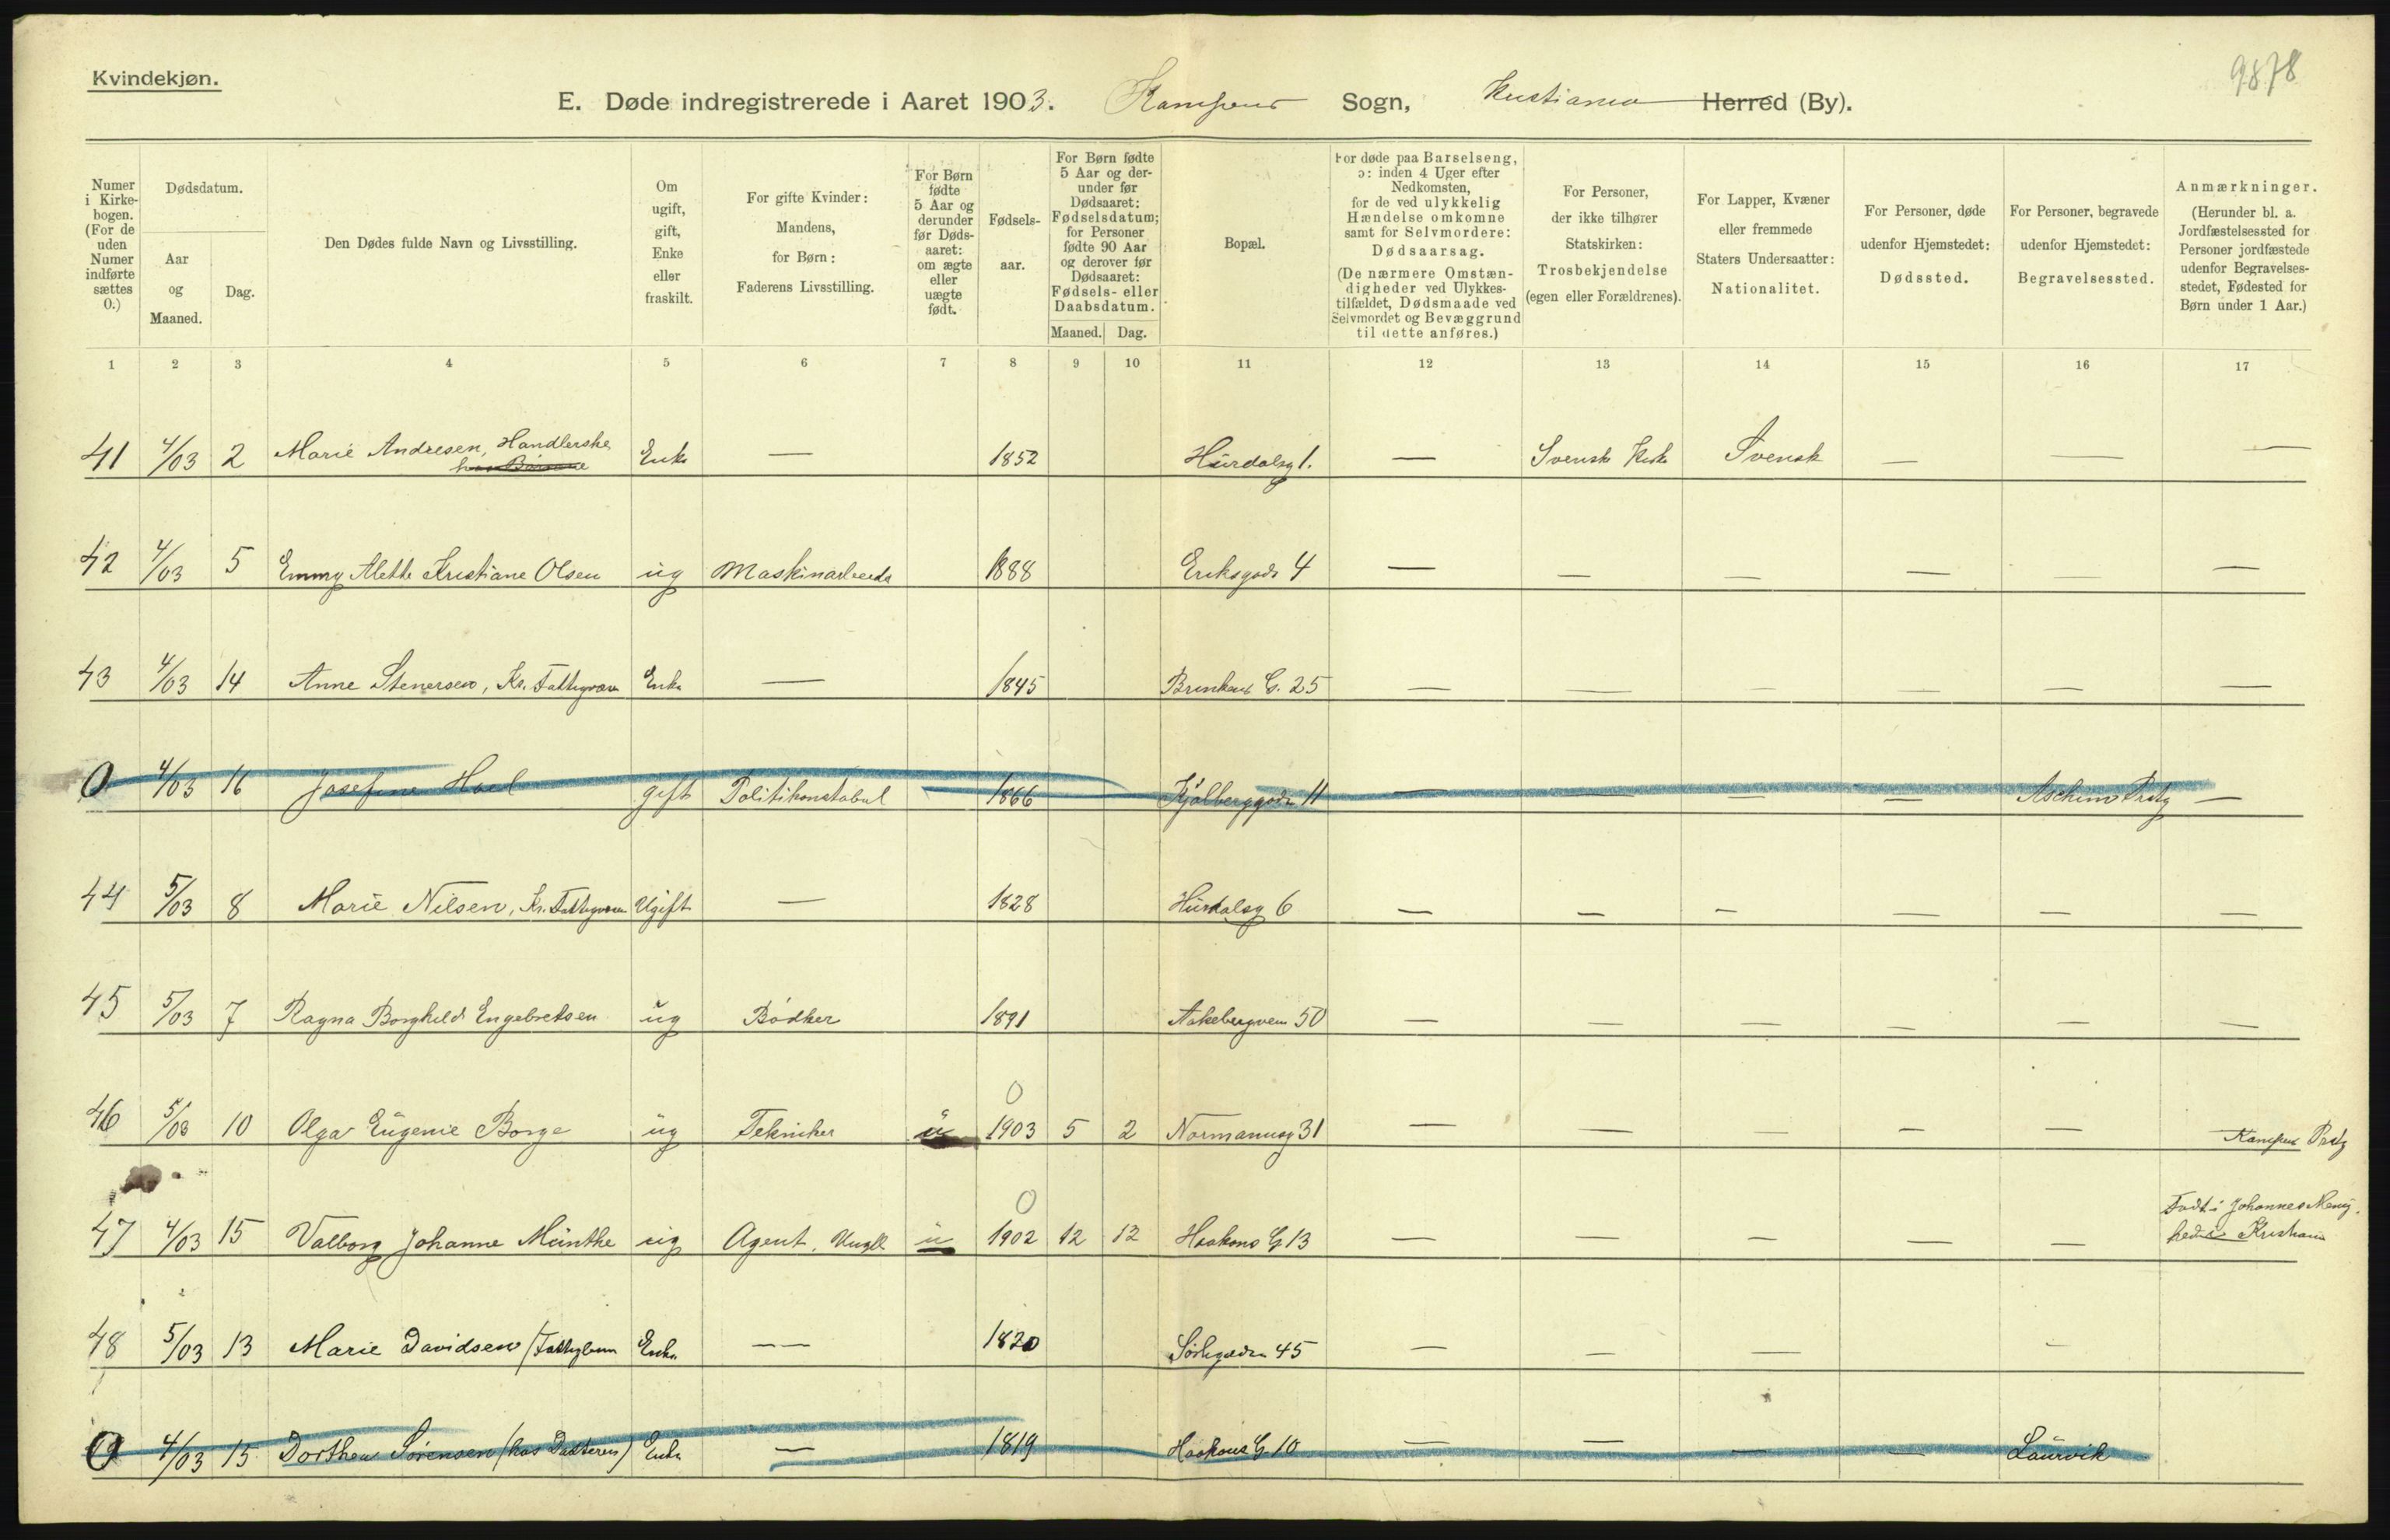 Kvindekjøn.
9878
E. Døde indregistrerede i Aaret 1903. Kampens Sogn, Kristiania Herred (By).
Numer i Kirkebogen. (For de uden Numer indførte sættes 0.)
Dødsdatum.
Aar og Maaned.
Dag.
Den Dødes fulde Navn og Livsstilling.
Om ugift, gift, Enke eller fraskilt.
For gifte Kvinder: Mandens, for Børn: Faderens Livsstilling.
For Børn fødte 5 Aar og derunder før Dødsaaret: om ægte eller uægte født.
Fødselsaar.
For Børn fødte 5 Aar og derunder før Dødsaaret: Fødselsdatum; for Personer fødte 90 Aar og derover før Dødsaaret: Fødsels- eller Daabsdatum.
Maaned. Dag.
Bopæl.
For døde paa Barselseng, ɔ: inden 4 Uger efter Nedkomsten, for de ved ulykkelig Hændelse omkomne samt for Selvmordere: Dødsaarsag. (De nærmere Omstændigheder ved Ulykkestilfældet, Dødsmaade ved Selvmordet og Bevæggrund til dette anføres.)
For Personer, der ikke tilhører Statskirken: Trosbekjendelse (egen eller Forældrenes).
For Lapper, Kvæner eller fremmede Staters Undersaatter: Nationalitet.
For Personer, døde udenfor Hjemstedet: Dødssted.
For Personer, begravede udenfor Hjemstedet: Begravelsessted.
Anmærkninger. (Herunder bl. a. Jordfæstelsessted for Personer jordfæstede udenfor Begravelsesstedet, Fødested for Børn under 1 Aar.)
1 2 3 4 5 6 7 8 9 10 11 12 13 14 15 16 17
41 4/03 2 Marie Andresen, Handlerske Enke — 1852 Hurdalsg 1. — Svensk Kirke Svensk — — —
42 4/03 5 Emmy Alette Kristiane Olsen ug Maskinarbeider 1888 Eriksgade 4 — — — — — —
43 4/03 14 Anne Stenersen, Kr. Fattigvæsen Enke — 1845 Brinkens G. 25 — — — — — —
0 4/03 16 Josefine Hoel gift Politikonstabel 1866 Kjølberggaden 11 — — — — Aschim Prstg —
44 5/03 8 Marie Nilsen, Kr. Fattigvæsen Ugift — 1828 Hurdalsg 6 — — — — — —
45 5/03 7 Ragna Borghild Engebretsen ug Bødker 1891 Aakebergveien 50 — — — — — —
46 5/03 10 Olga Eugenie Borge ug Tekniker u 0 1903 5 2 Normannsg 31 — — — — — Kampens Prstg
47 4/03 15 Valborg Johanne Münthe ug Agent, Ungk u 0 1902 12 12 Haakons G 13 — — — — — Født i Johannes Menig-
hed i Kristiania
48 5/03 13 Marie Davidsen / Fattiglem Enke — — 1820 Sørligaden 45 — — — —
0 4/03 15 Dorthea Sørensen (hos Datteren) Enke — 1819 Haakons G. 10 — — — — Laurvik